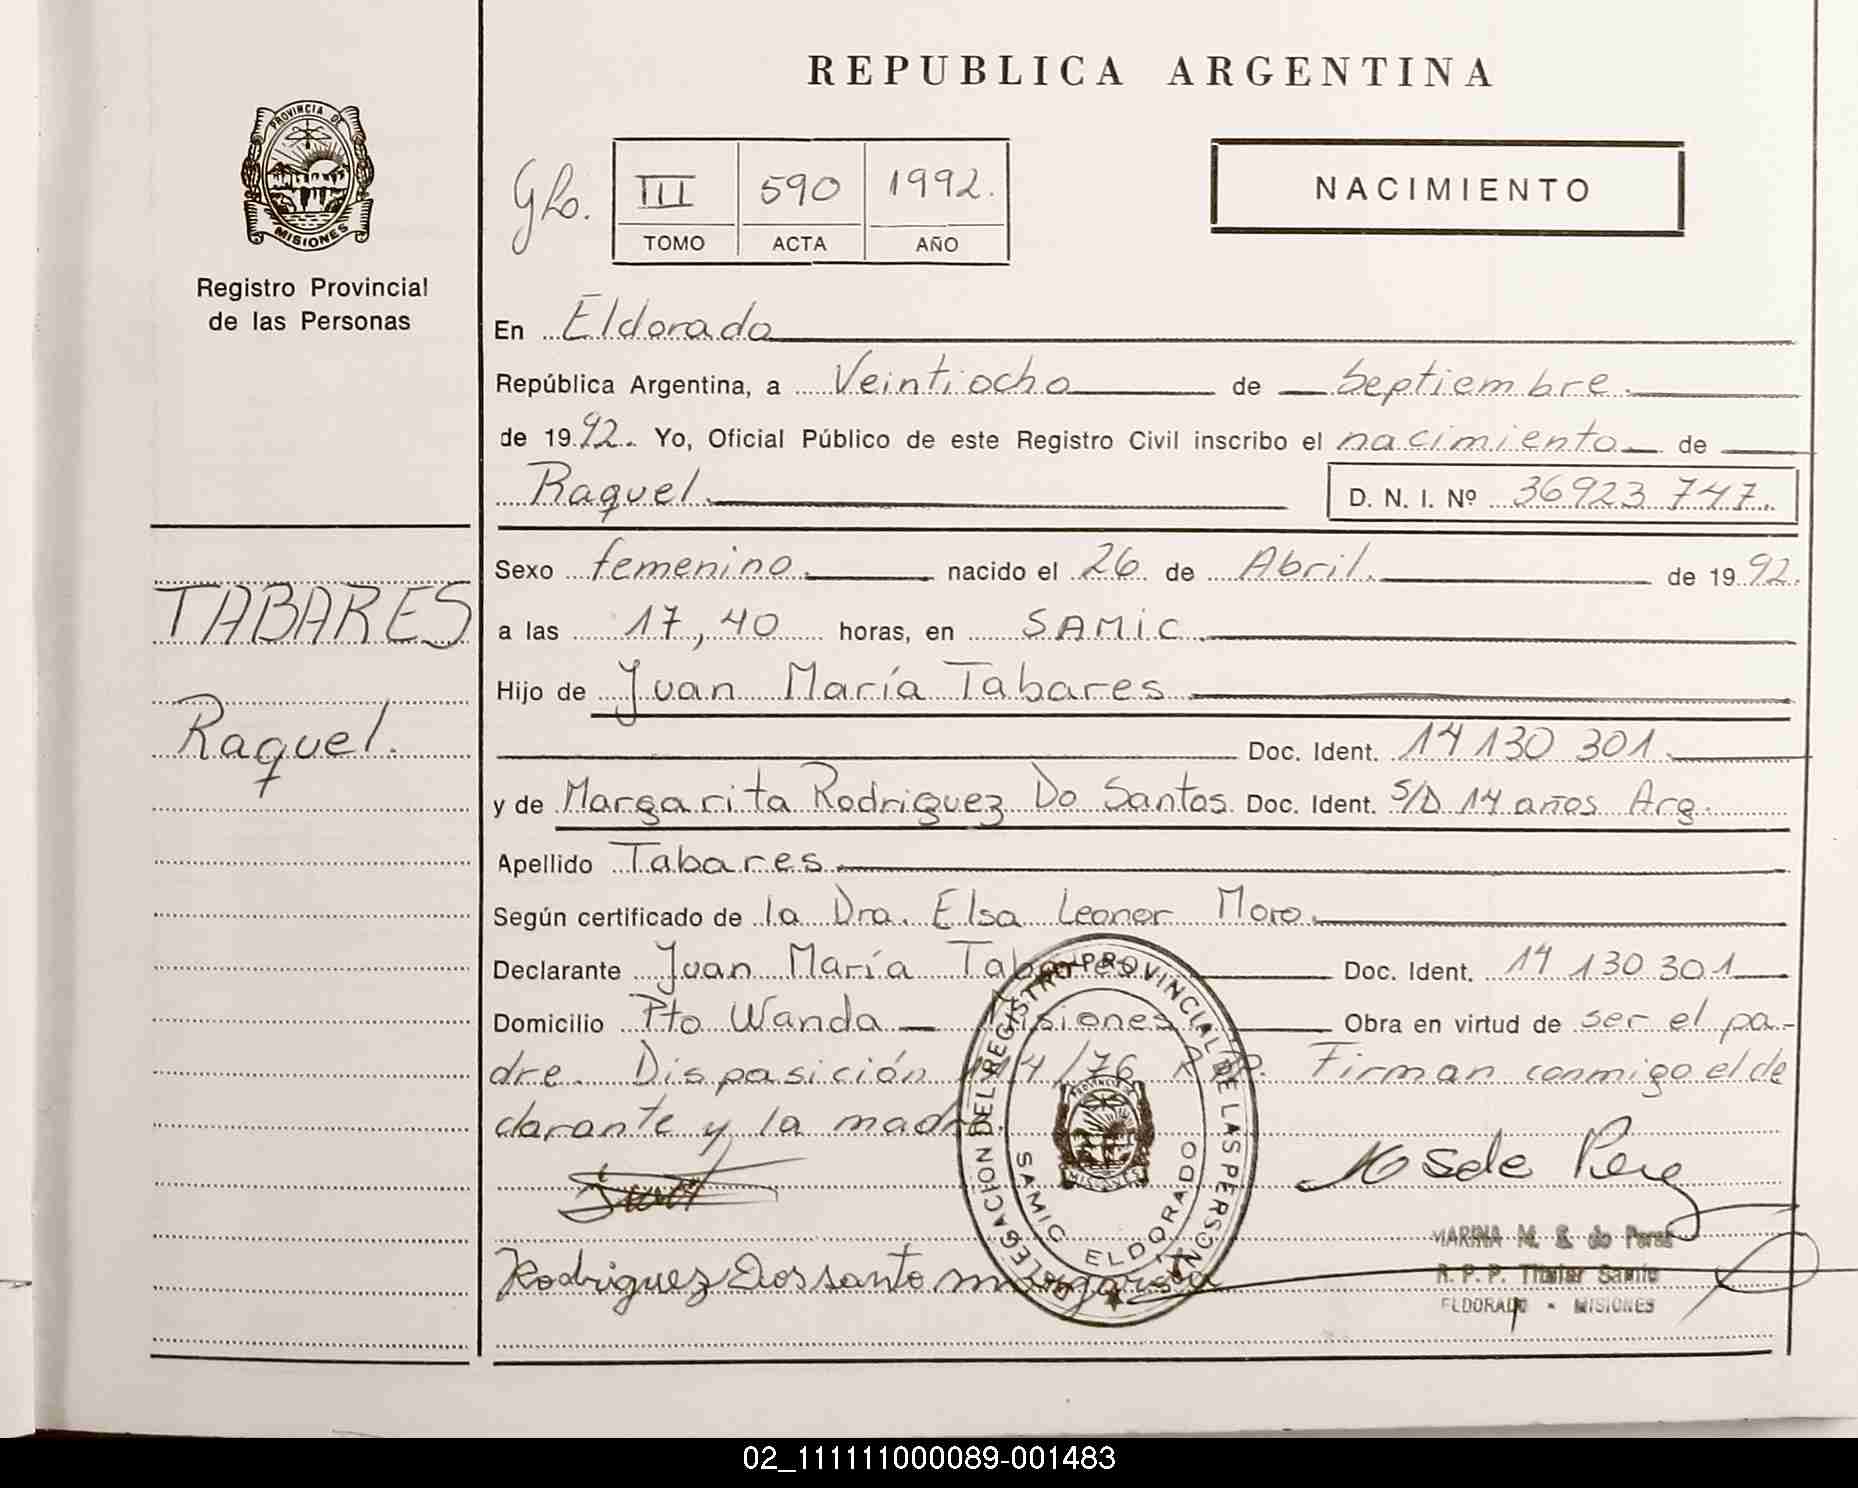 REPUBLICA ARGENTINA
PROVINCIA DE MISIONES
Registro Provincial
de las Personas
TABARES
Raquel.
Gho.
III 590 1992.
TOMO ACTA AÑO
NACIMIENTO
En Eldorado
República Argentina, a Veintiocho de Septiembre
de 1992. Yo, Oficial Público de este Registro Civil inscribo el nacimiento de
Raquel. D. N. I. Nº 36923 747.
Sexo femenino. nacido el 26 de Abril. de 1992.
a las 17,40 horas, en SAMIC.
Hijo de Juan María Tabares
Doc. Ident. 14 130 301.
y de Margarita Rodriguez Do Santos Doc. Ident. S/D 14 años Arg.
Apellido Tabares
Según certificado de la Dra. Elsa Leonor Moro.
Declarante Juan María Tabares Doc. Ident. 14 130 301
Domicilio Pto Wanda — Misiones Obra en virtud de ser el pa-
dre. Disposición 4/76 Firman conmigo el de
clarante y la madre.
DELEGACION DEL REGISTRO PROVINCIAL DE LAS PERSONAS
SAMIC ELDORADO
PROVINCIA DE MISIONES
Rodriguez Dossanto margarita
MARINA M. S. de Perez
R. P. P. Titular Samic
ELDORADO - MISIONES
02_111111000089-001483